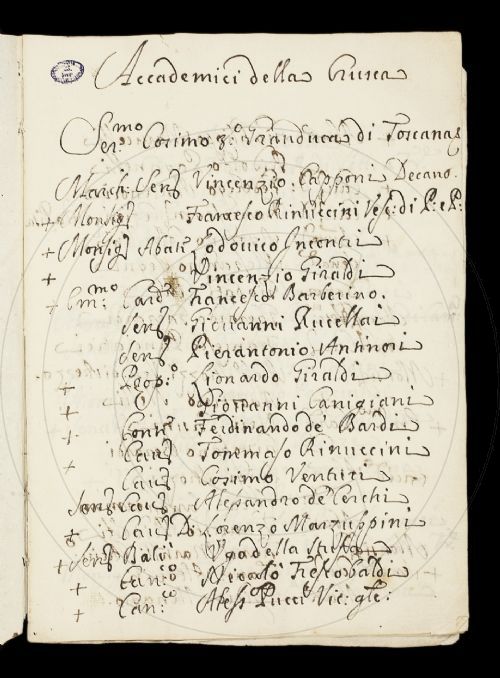 Accademici della Crusca
Ser.mo Cosimo 3.o Granduca di Toscana
March: Sen.r Vincenzio Capponi Decano.
+ Monsig.r Francesco Rinuccini Vesc: di P: e P:
+ Monsig.r Abate Lodovico Incontri
+ Vincenzio Giraldi
+ Em:mo Card.e Francesco Barberino.
Sen.r Giovanni Rucellai
Sen.r Pierantonio Antinori
+ Prop:o Lionardo Giraldi
+ Giovanni Canigiani
+ Cont.e Ferdinando de Bardi
Cav.r Tommaso Rinuccini
+ Cav.r Cosimo Venturi
Sen.r Cav.r Alessandro de Cerchi
+ Cav.r Lorenzo Marzuppini
+ Sen.r Balì Ugo della Stufa
+ Can:co Nicolò Frescobaldi
+ Can:co Aless.o Pucci Vic: gle: